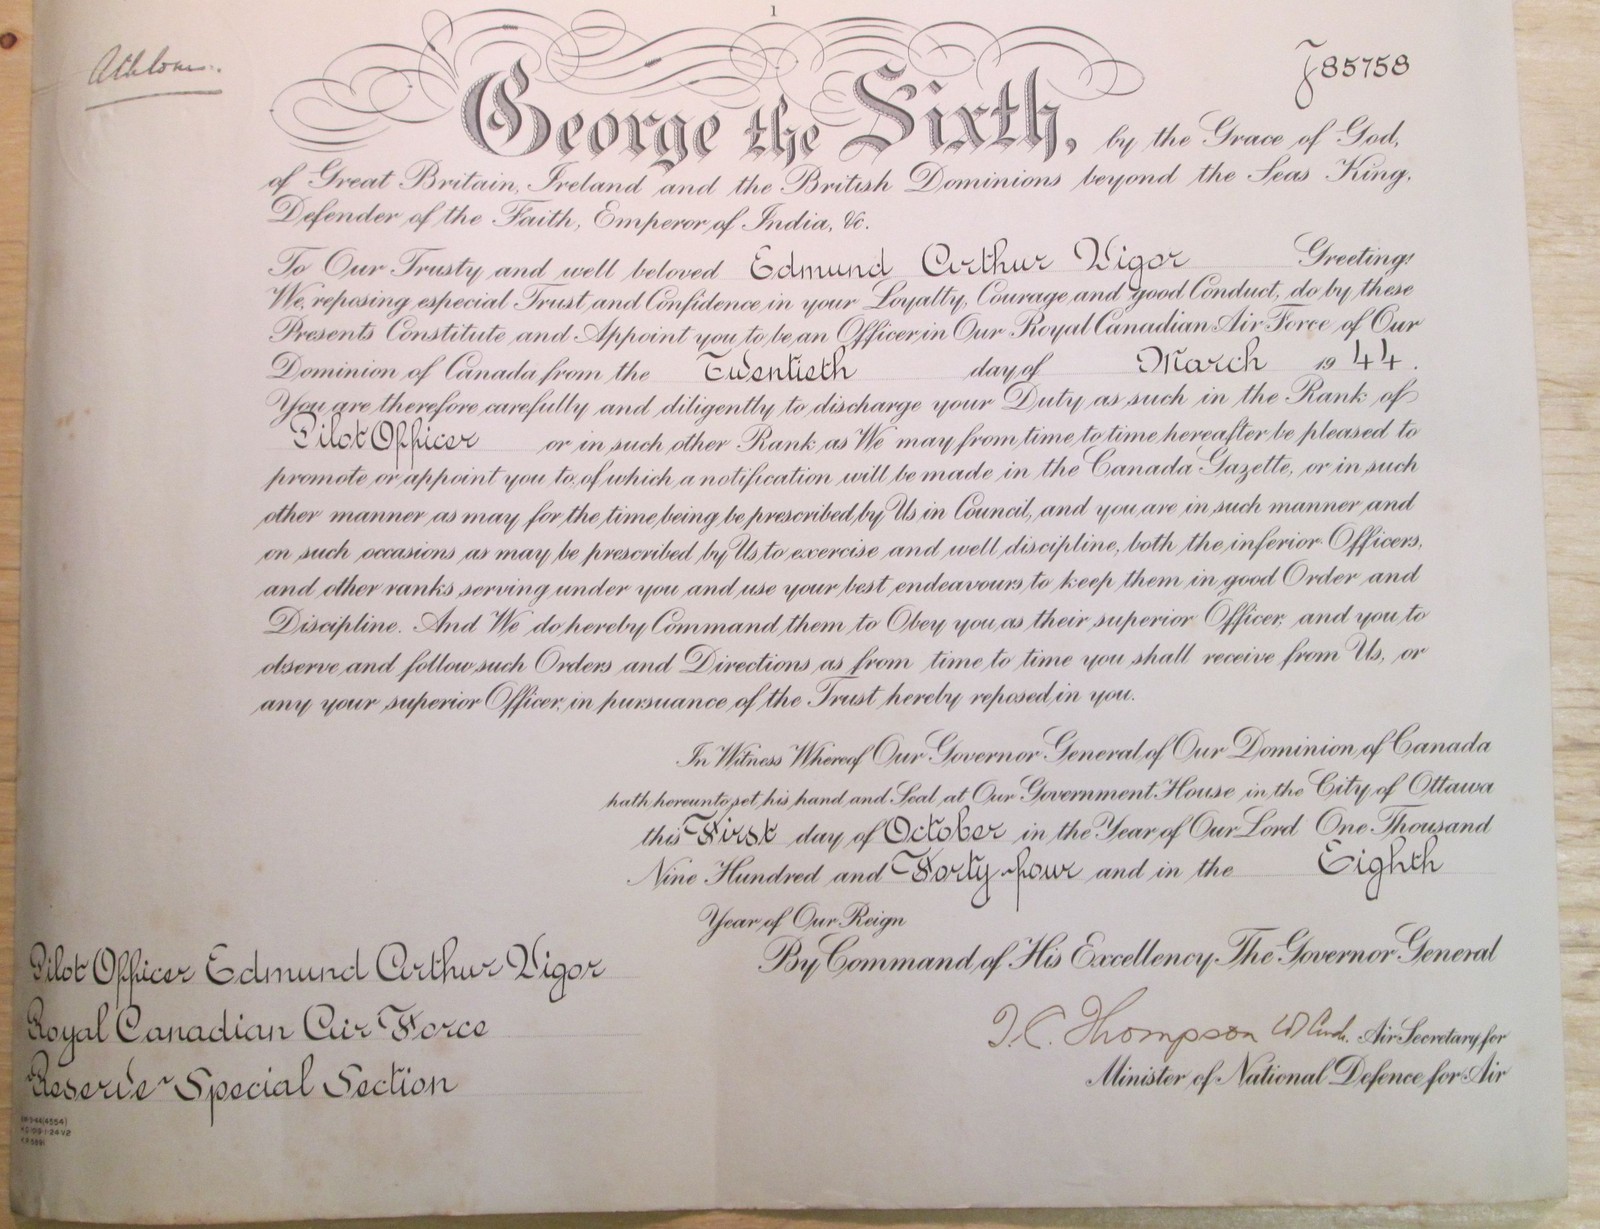 1
Athlone.
J85758
George the Sixth, by the Grace of God,
of Great Britain, Ireland and the British Dominions beyond the Seas King,
Defender of the Faith, Emperor of India, &c.
To Our Trusty and well beloved Edmund Arthur Vigor Greeting:
We, reposing especial Trust and Confidence in your Loyalty, Courage and good Conduct, do by these
Presents Constitute and Appoint you to be an Officer in Our Royal Canadian Air Force of Our
Dominion of Canada from the Twentieth day of March 1944.
You are therefore carefully and diligently to discharge your Duty as such in the Rank of
Pilot Officer or in such other Rank as We may from time to time hereafter be pleased to
promote or appoint you to, of which a notification will be made in the Canada Gazette, or in such
other manner as may for the time being be prescribed by Us in Council, and you are in such manner and
on such occasions as may be prescribed by Us, to exercise and well discipline, both the inferior Officers,
and other ranks serving under you and use your best endeavours to keep them in good Order and
Discipline. And We do hereby Command them to Obey you as their superior Officer, and you to
observe and follow such Orders and Directions as from time to time you shall receive from Us, or
any your superior Officer, in pursuance of the Trust hereby reposed in you.
In Witness Whereof Our Governor General of Our Dominion of Canada
hath hereunto set his hand and Seal at Our Government House in the City of Ottawa
this First day of October in the Year of Our Lord One Thousand
Nine Hundred and Forty-four and in the Eighth
Year of Our Reign
By Command of His Excellency The Governor General
Pilot Officer Edmund Arthur Vigor
Royal Canadian Air Force
Reserve-Special Section
Thompson Air Secretary for
Minister of National Defence for Air